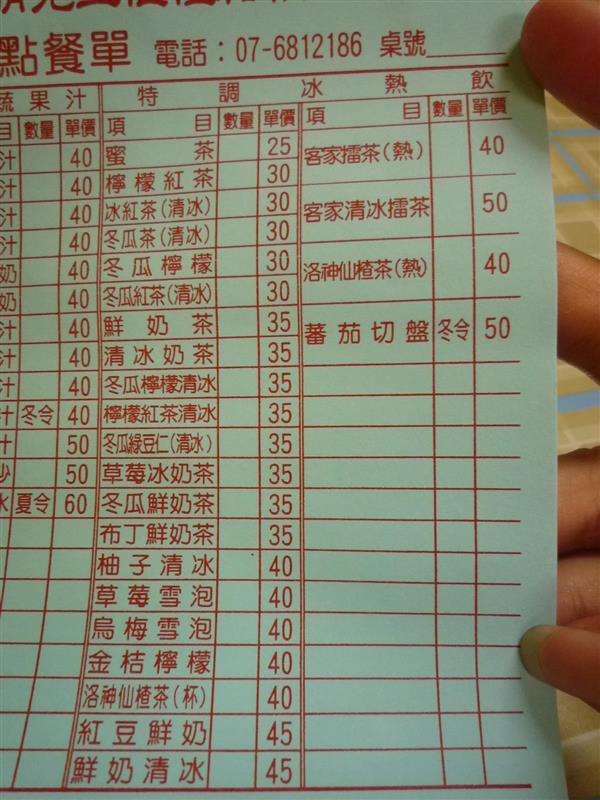 點餐單 電話：07-6812186 桌號
蔬果汁 特調冰熱飲
目 數量 單價 項目 數量 單價 項目 數量 單價
汁 40 蜜茶 25 客家擂茶(熱) 40
汁 40 檸檬紅茶 30
汁 40 冰紅茶(清冰) 30 客家清冰擂茶 50
汁 40 冬瓜茶(清冰) 30
奶 40 冬瓜檸檬 30 洛神仙楂茶(熱) 40
奶 40 冬瓜紅茶(清冰) 30
汁 40 鮮奶茶 35 蕃茄切盤 冬令 50
汁 40 清冰奶茶 35
汁 40 冬瓜檸檬清冰 35
汁 冬令 40 檸檬紅茶清冰 35
汁 50 冬瓜綠豆仁(清冰) 35
沙 50 草莓冰奶茶 35
冰 夏令 60 冬瓜鮮奶茶 35
布丁鮮奶茶 35
柚子清冰 40
草莓雪泡 40
烏梅雪泡 40
金桔檸檬 40
洛神仙楂茶(杯) 40
紅豆鮮奶 45
鮮奶清冰 45